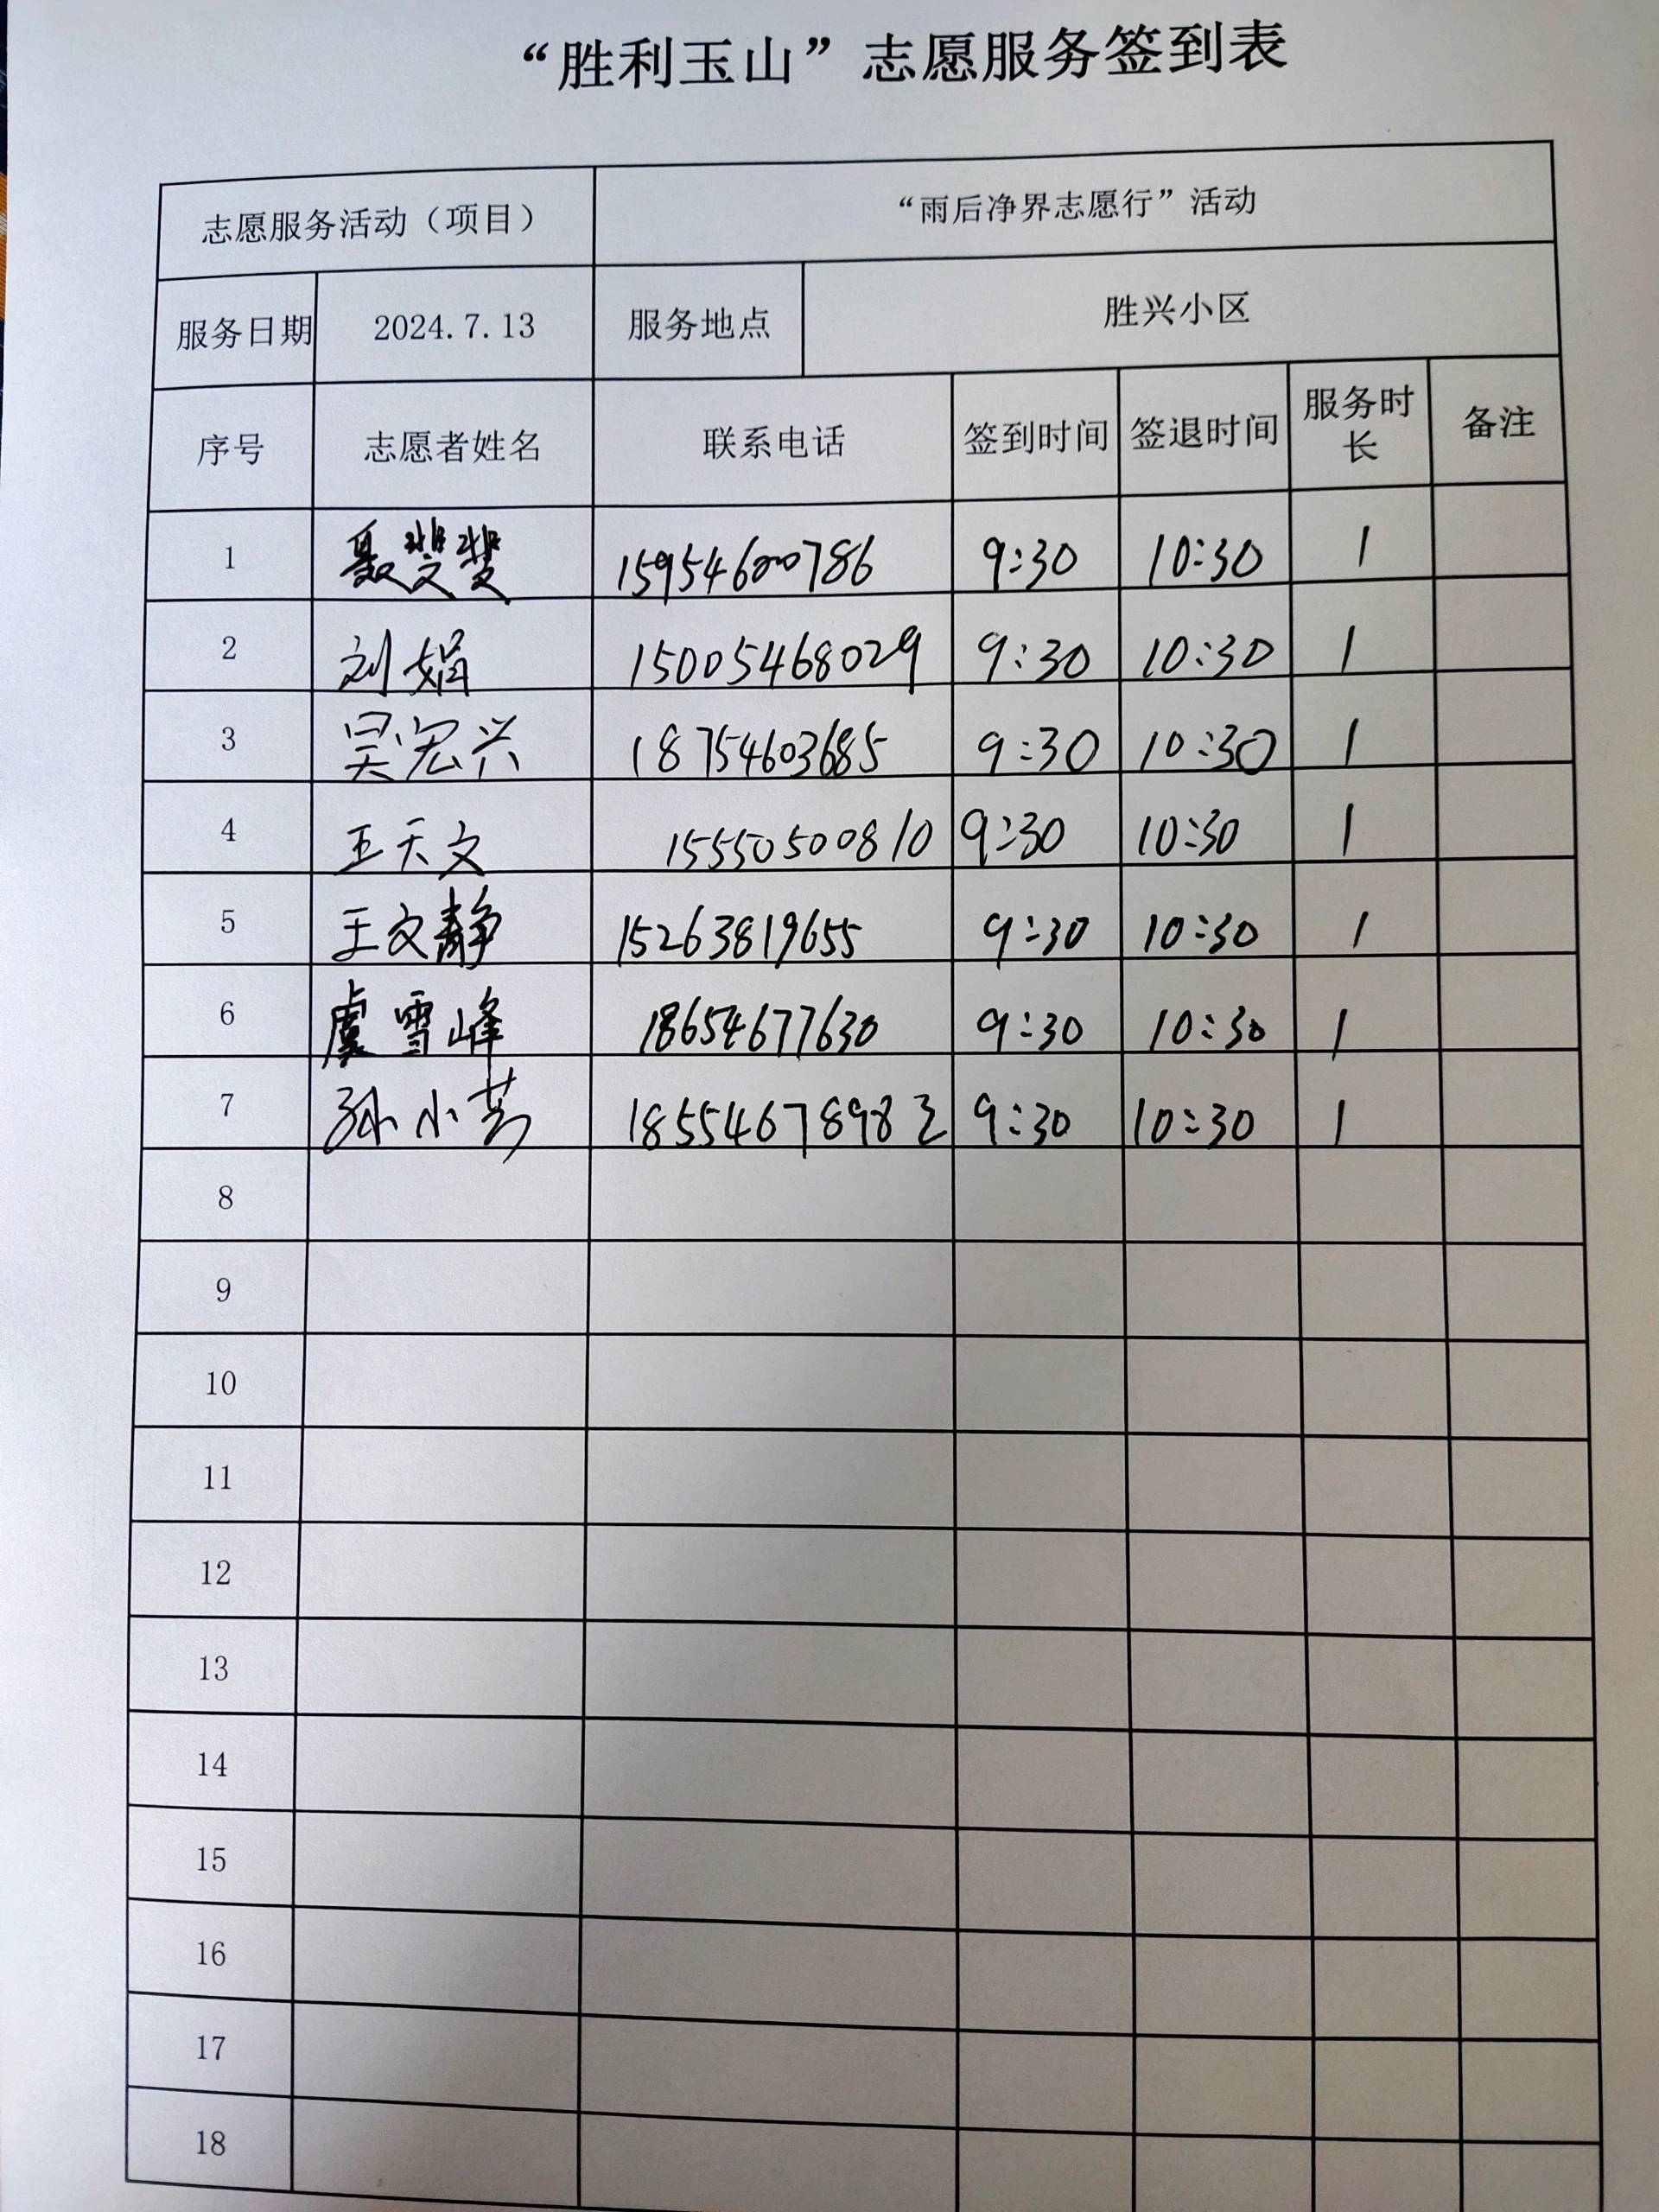 “胜利玉山”志愿服务签到表
志愿服务活动（项目） “雨后净界志愿行”活动
服务日期 2024.7.13 服务地点 胜兴小区
序号 志愿者姓名 联系电话 签到时间 签退时间 服务时长 备注
1 聂斐斐 15954600786 9:30 10:30 1
2 刘娟 15005468029 9:30 10:30 1
3 吴宏兴 18754603685 9:30 10:30 1
4 王天文 15550500810 9:30 10:30 1
5 王文静 15263819655 9:30 10:30 1
6 虞雪峰 18654677630 9:30 10:30 1
7 孙小芳 9:30 10:30 1
8
9
10
11
12
13
14
15
16
17
18